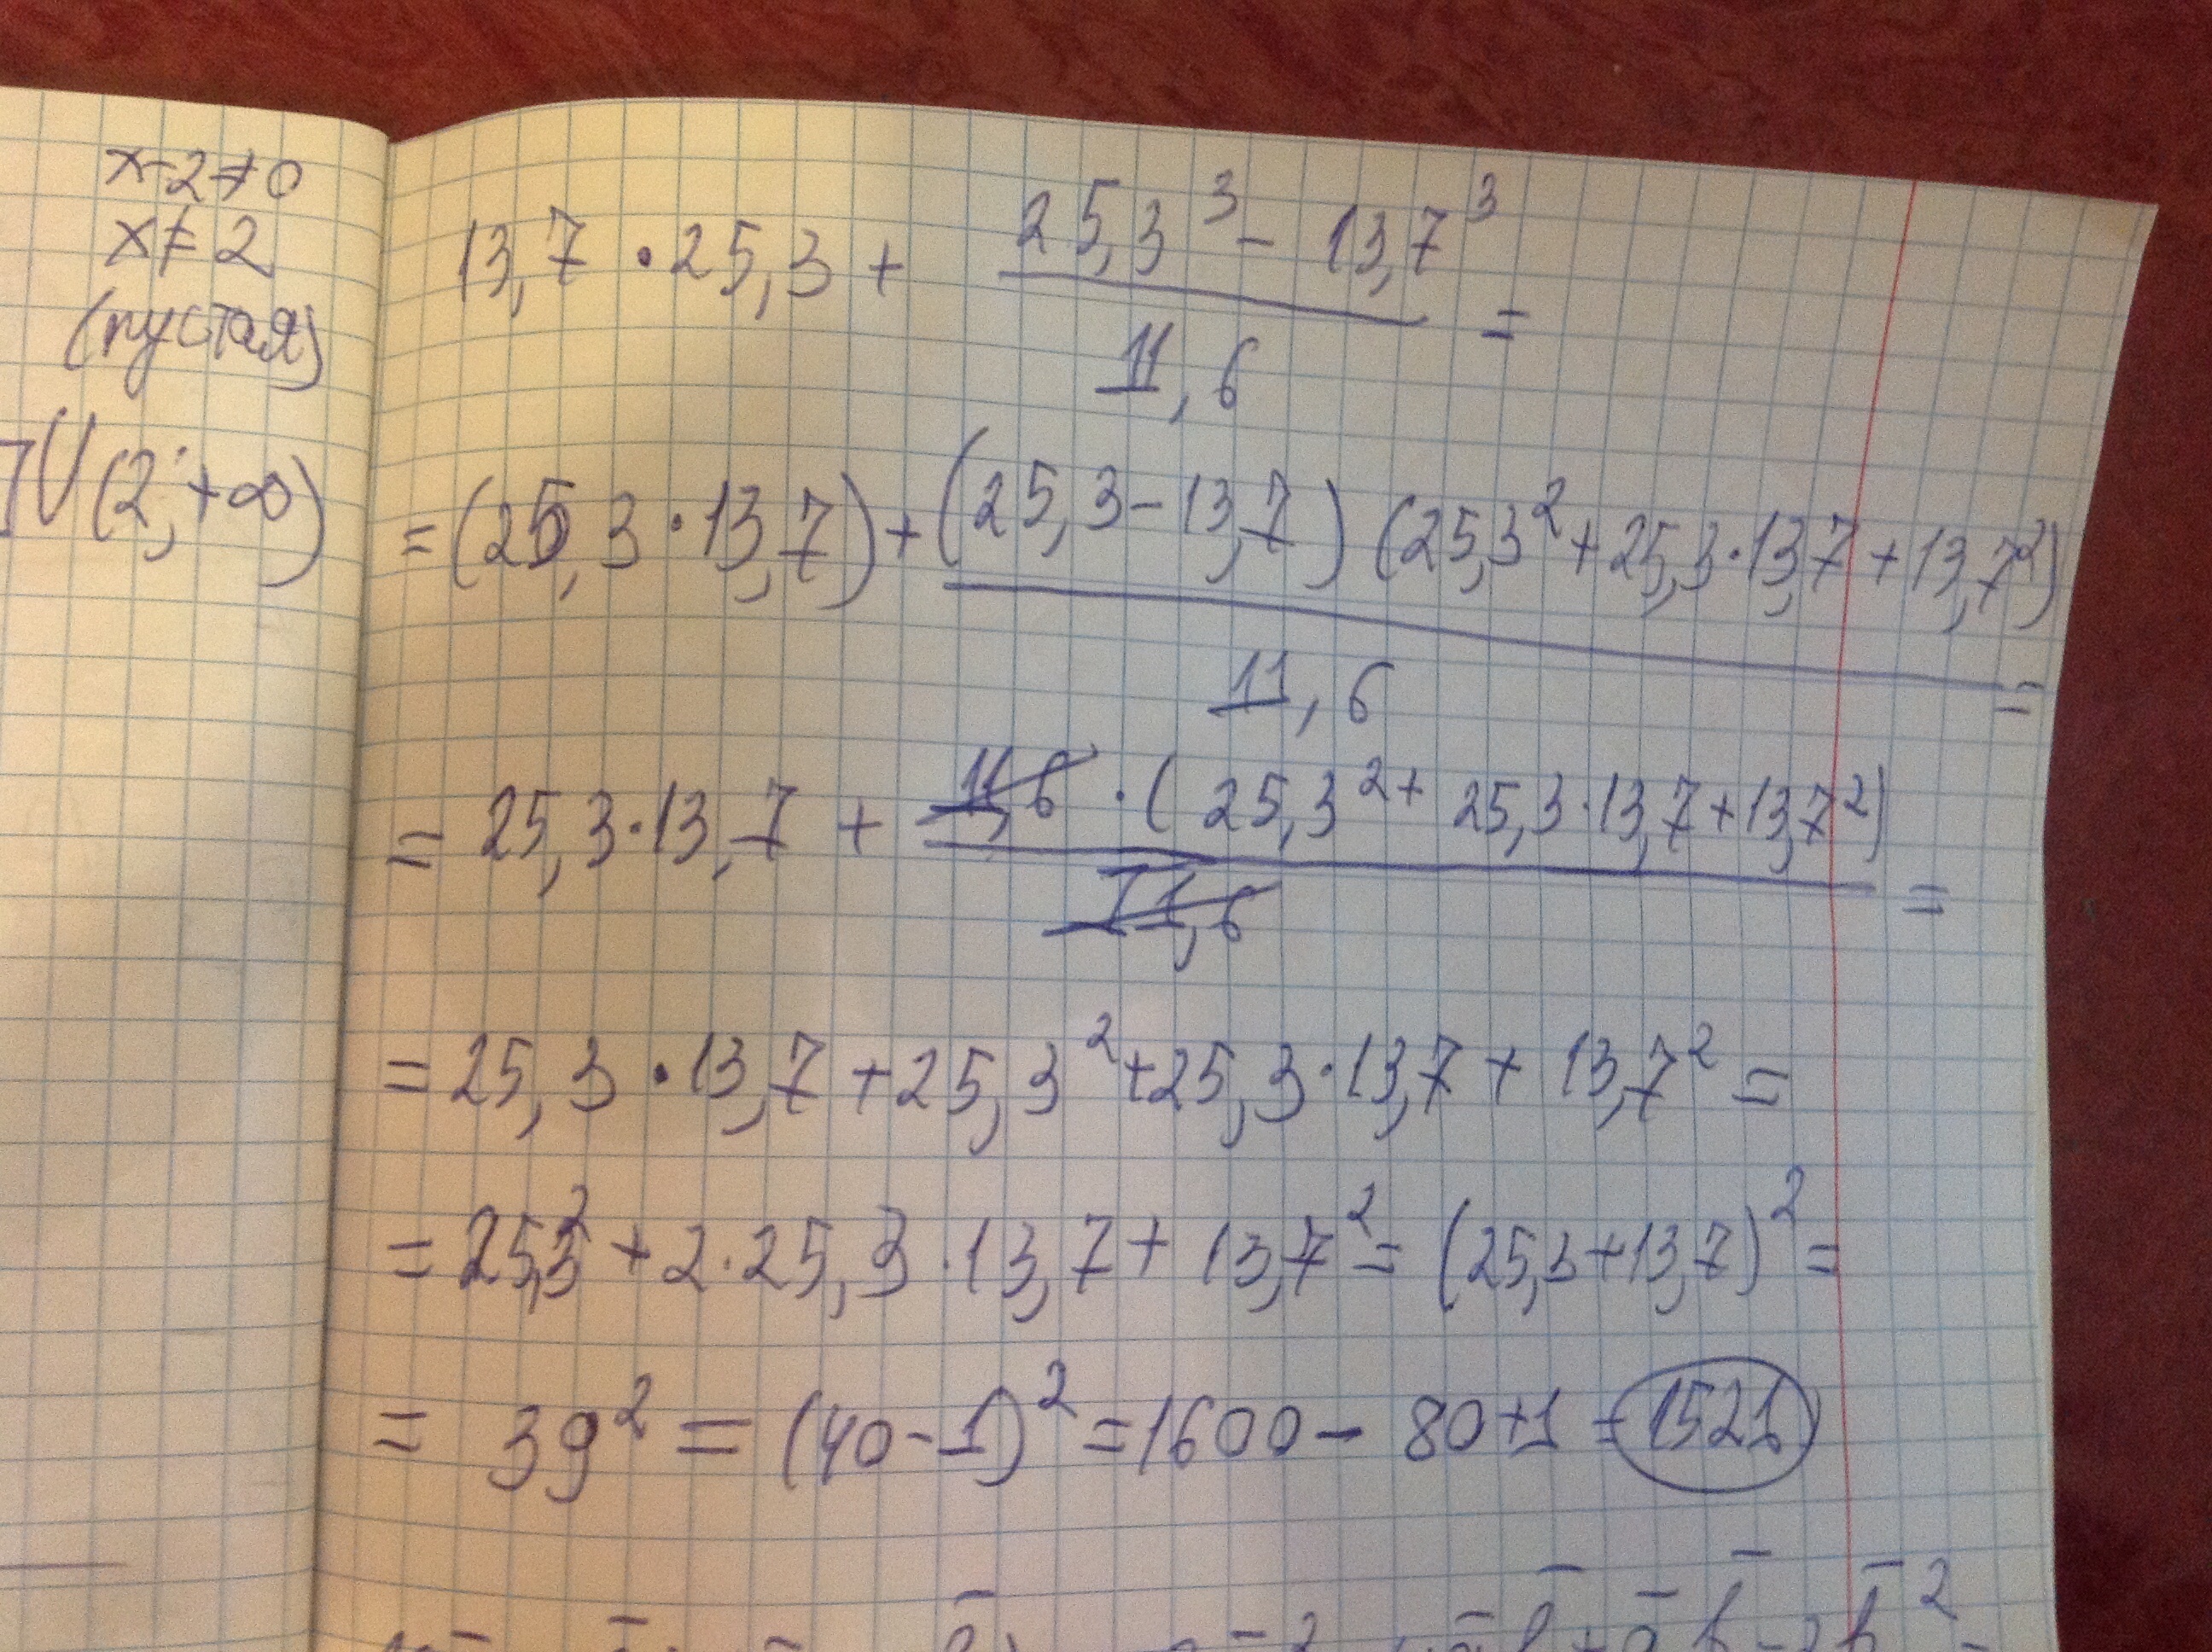 x-2≠0
x≠2
(пустая)
]U(2;+∞)
13,7 · 25,3 + (25,3³ - 13,7³)/11,6 =
= (25,3 · 13,7) + (25,3 - 13,7)(25,3² + 25,3 · 13,7 + 13,7²)/11,6 =
= 25,3 · 13,7 + 11,6 · (25,3² + 25,3 · 13,7 + 13,7²)/11,6 =
= 25,3 · 13,7 + 25,3² + 25,3 · 13,7 + 13,7² =
= 25,3² + 2 · 25,3 · 13,7 + 13,7² = (25,3 + 13,7)² =
= 39² = (40 - 1)² = 1600 - 80 + 1 = 1521